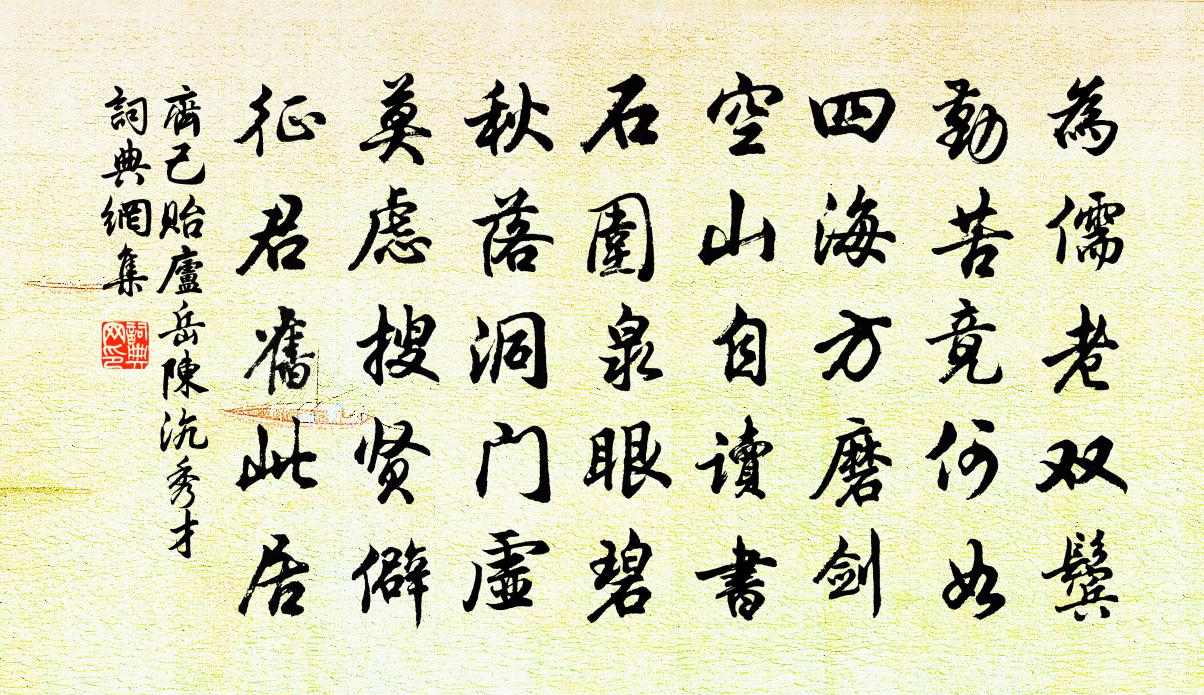 為儒老双鬓
勤苦竟何如
四海方磨剑
空山自讀書
石圍泉眼碧
秋落洞门虚
莫虑搜贤僻
征君舊此居
齊己贻廬岳陳沆秀才
詞典網集
詞典网印